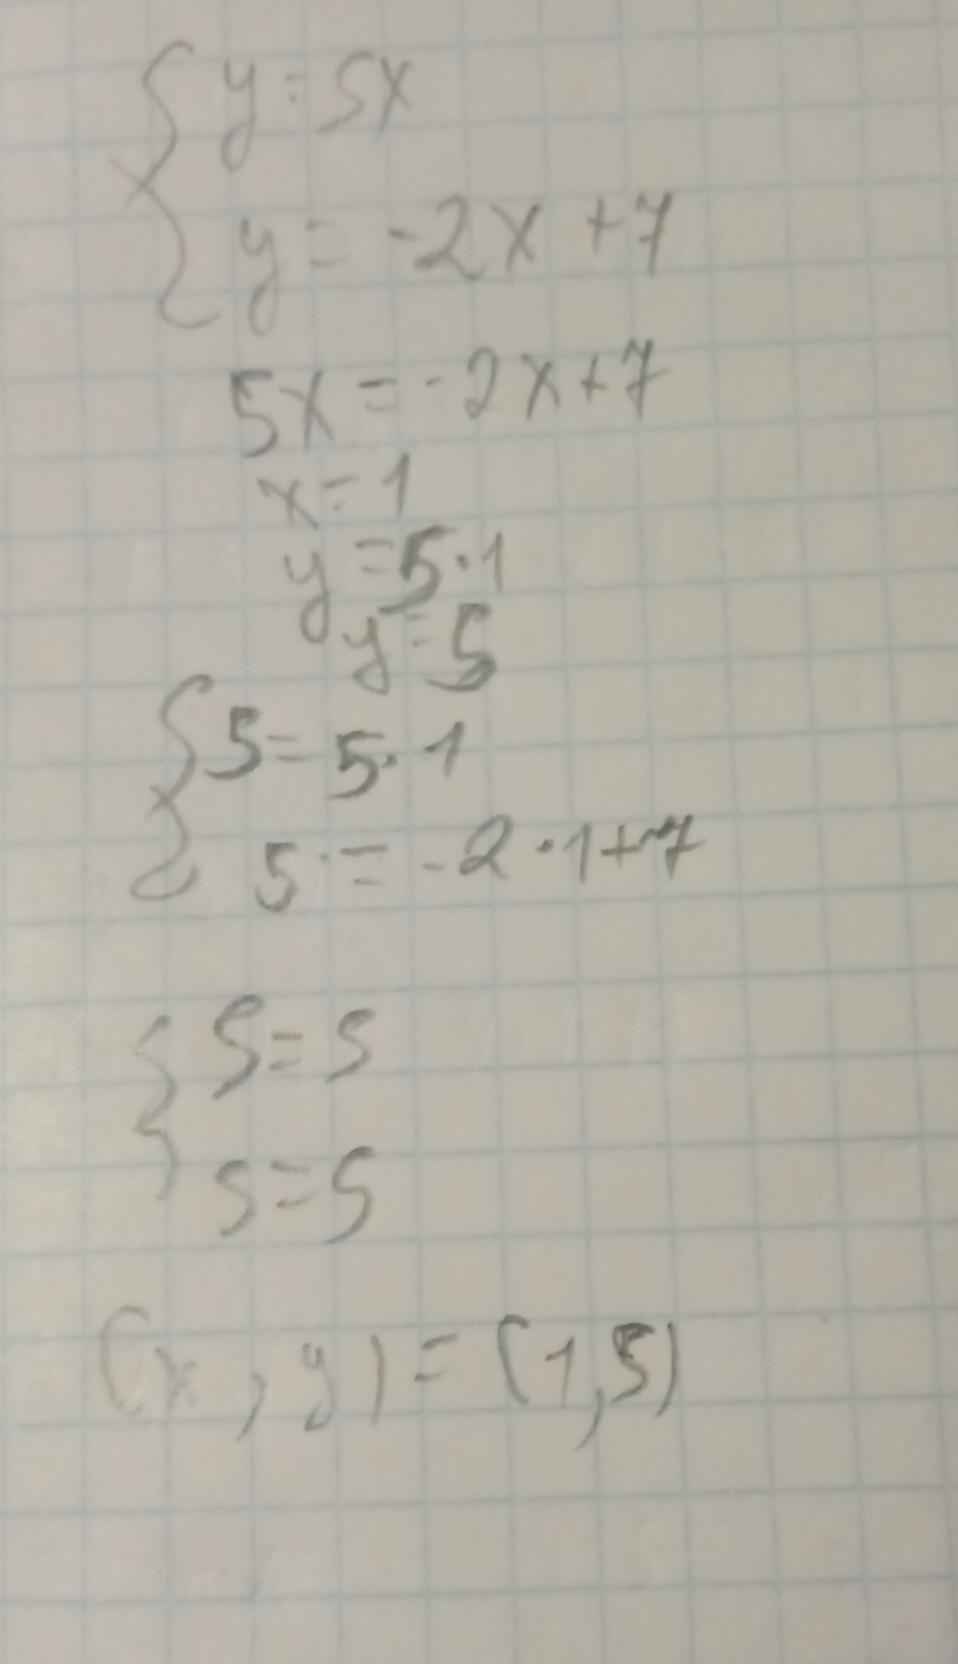 { y = 5x
y = -2x + 7
5x = -2x + 7
x = 1
y = 5·1
y = 5
{ 5 = 5·1
5 = -2·1+7
{ 5 = 5
5 = 5
(x, y) = (1, 5)